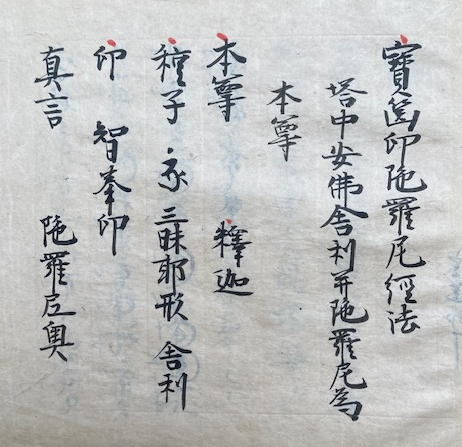 寶篋印陁羅尼經法
塔中安佛舍利并陁羅尼為
本尊
本尊 釋迦
種子 三昧耶形 舍利
印 智拳印
真言 陁羅尼奥